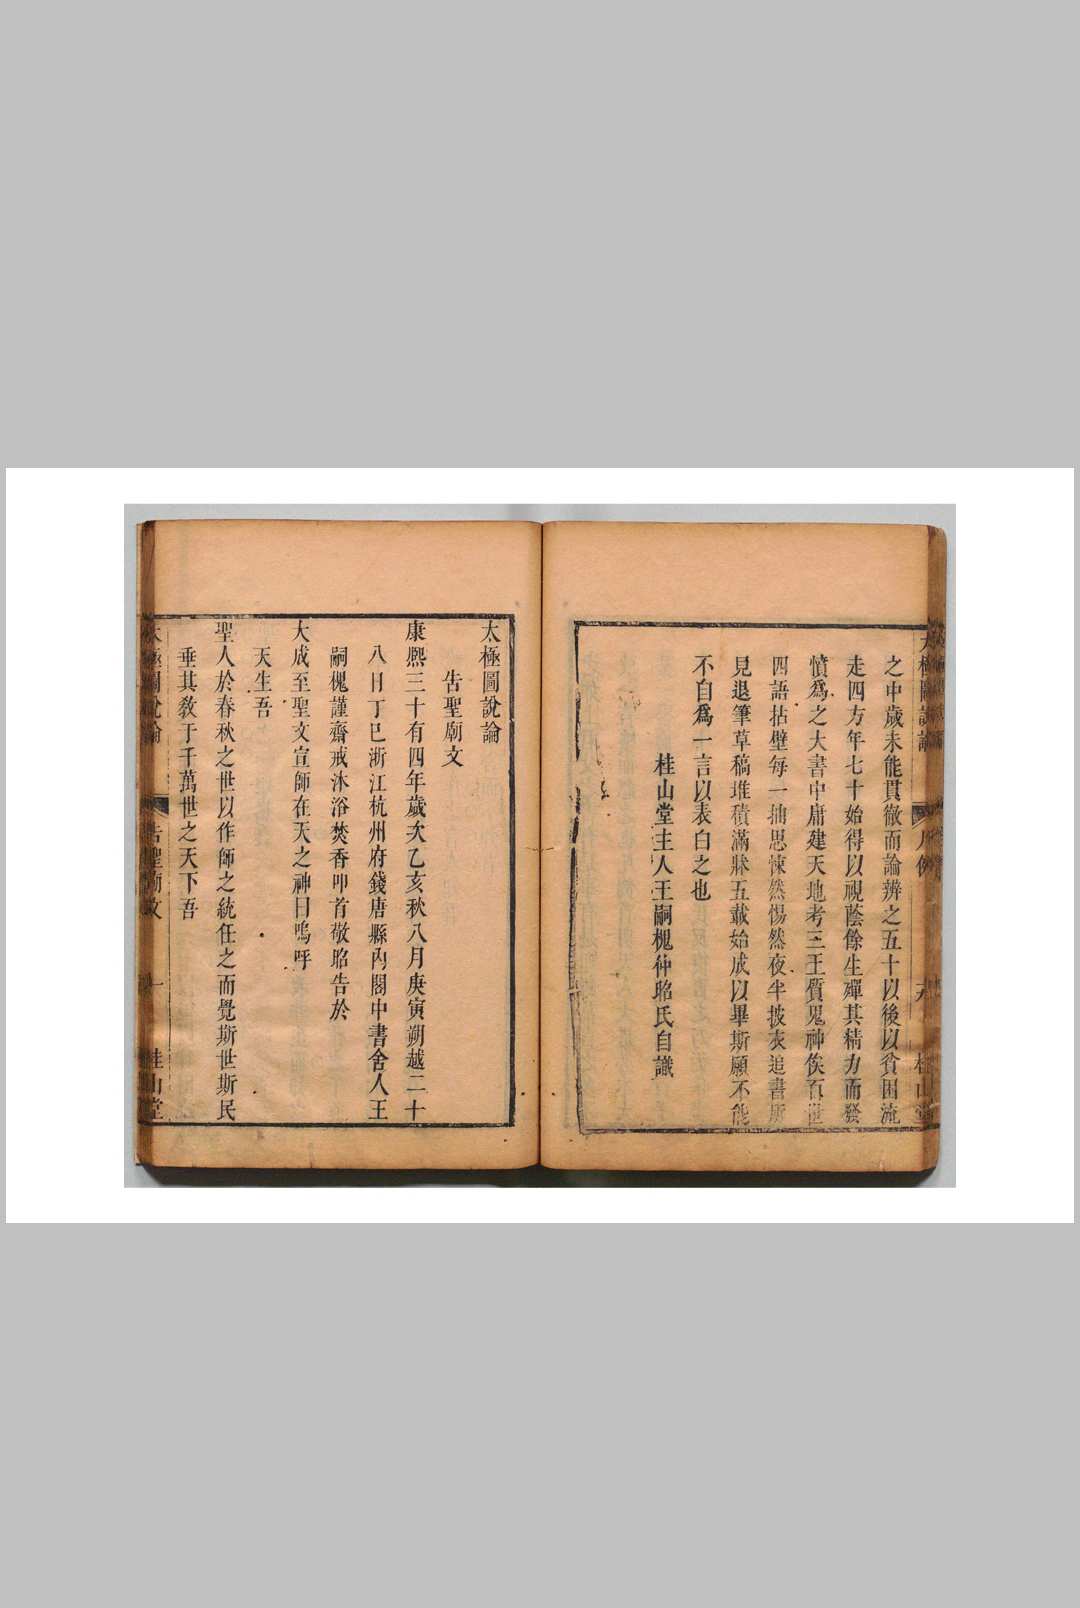 之中歲未能貫徹而論辨之五十以後以貧困流
走四方年七十始得以視蔭餘生殫其精力而發
憤爲之大書中庸建天地考三王質鬼神俟百世
四語拈壁每一抽思悚然惕然夜半披衣追書所
見退筆草稿堆積滿牀五載始成以畢斯願不能
不自爲一言以表白之也
桂山堂主人王嗣槐仲昭氏自識
太極圖說論
告聖廟文
康熙三十有四年歲次乙亥秋八月庚寅朔越二十
八日丁巳浙江杭州府錢唐縣內閣中書舍人王
嗣槐謹齋戒沐浴焚香叩首敬昭告於
大成至聖文宣師在天之神曰嗚呼
天生吾
聖人於春秋之世以作師之統任之而覺斯世斯民
垂其敎于千萬世之天下吾
太極圖說論 告聖廟文 一 桂山堂